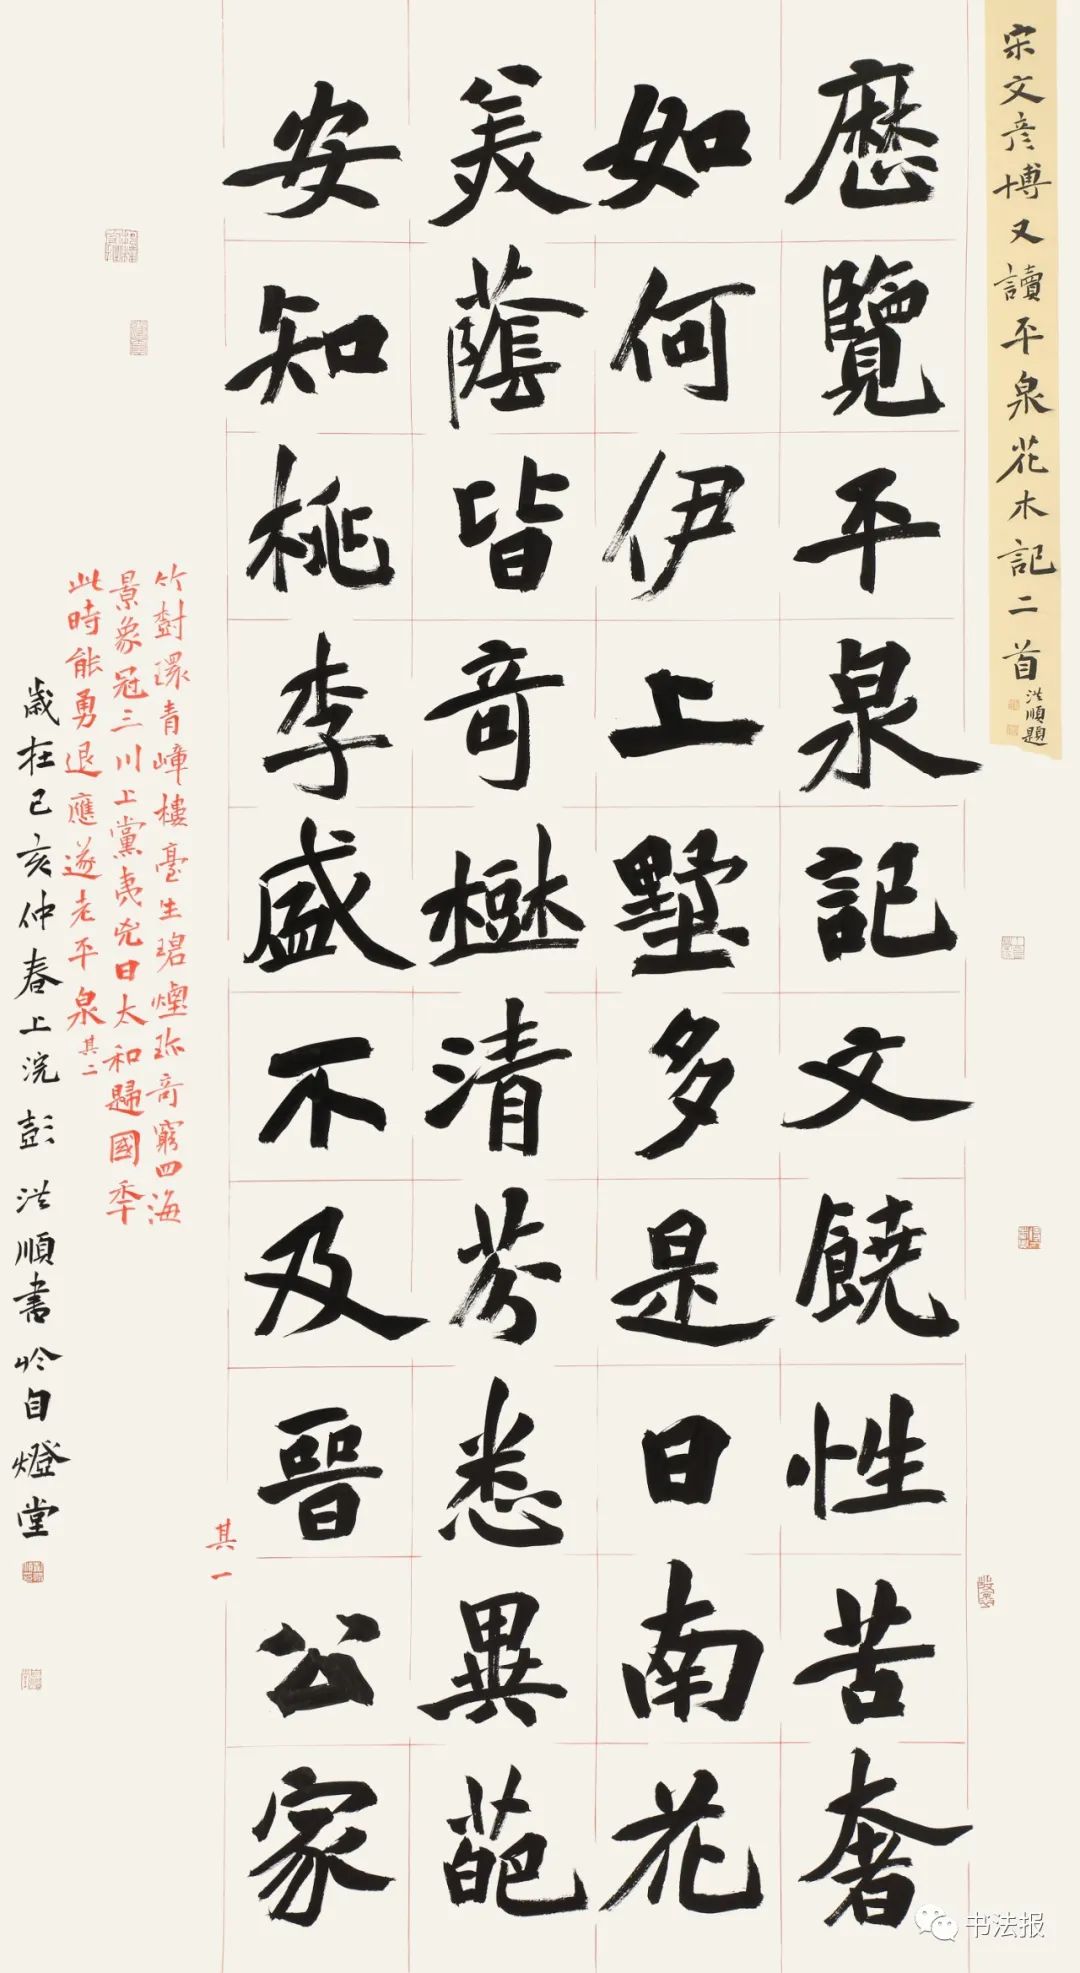 宋文彦博又讀平泉花木記二首
洪順題
歷覽平泉記文饒性苦奢
如何伊上墅多是日南花
美蔭皆奇樾清芬悉異葩
安知桃李盛不及晉公家
其一
竹樹環青嶂樓臺生碧煙珍奇窮四海
景象冠三川上黨夷兇日太和歸國年
此時能勇退應遂老平泉 其二
歲在己亥仲春上浣彭洪順書於自燈堂
书法报